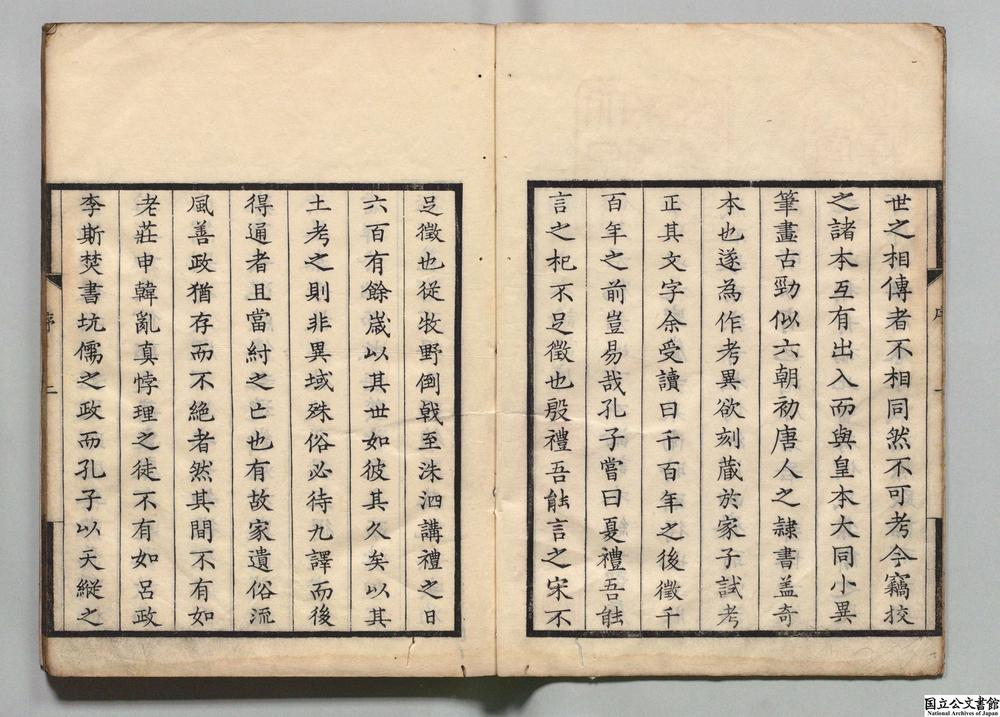 世之相傳者不相同然不可考今竊挍
之諸本互有出入而與皇本大同小異
筆畫古勁似六朝初唐人之隷書盖奇
本也遂為作考異欲刻蔵於家子試考
正其文字余受讀曰千百年之後徵千
百年之前豈易哉孔子嘗曰夏禮吾能
言之杞不足徵也殷禮吾能言之宋不
足徵也從牧野倒戟至洙泗講禮之日
六百有餘歳以其世如彼其久矣以其
土考之則非異域殊俗必待九譯而後
得通者且當紂之亡也有故家遺俗流
風善政猶存而不絶者然其間不有如
老莊申韓亂真悖理之徒不有如呂政
李斯焚書坑儒之政而孔子以天縱之
国立公文書館
National Archives of Japan